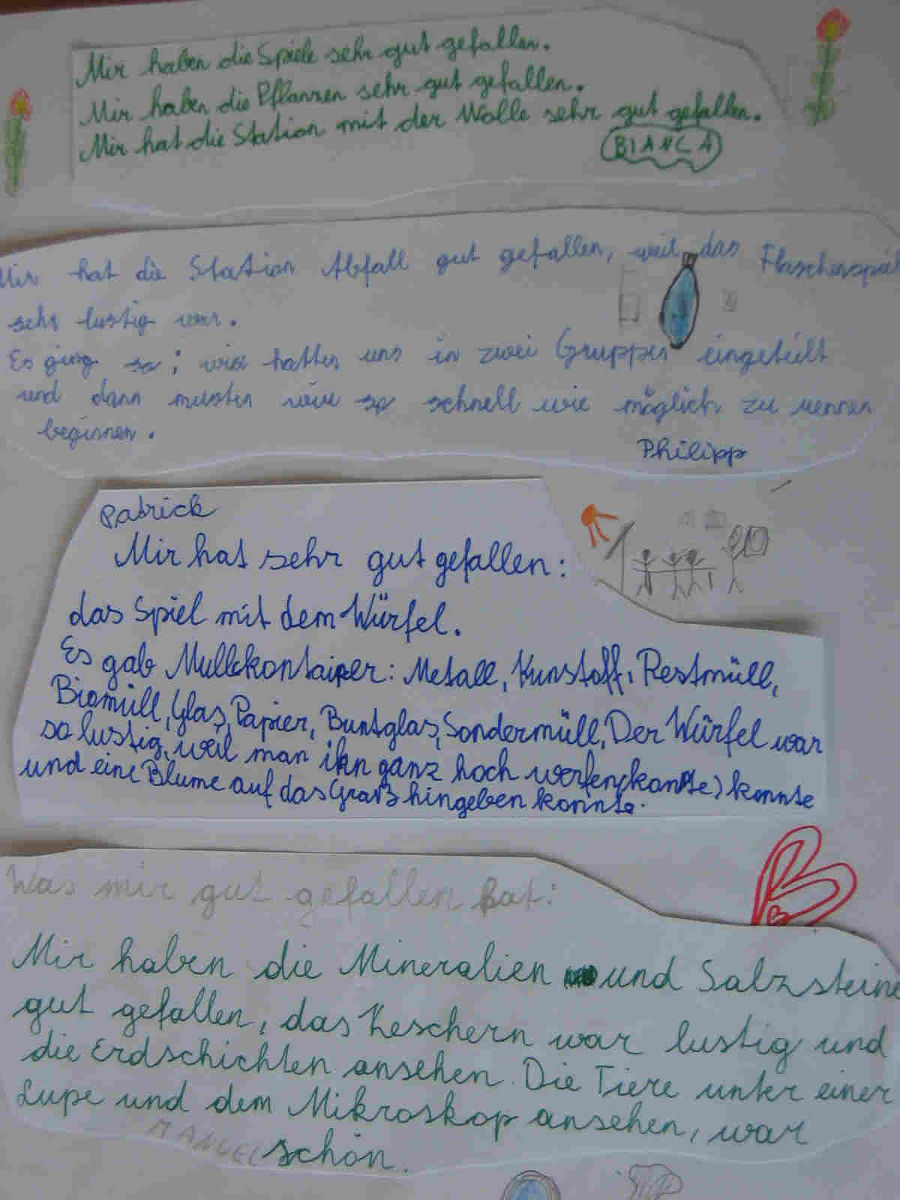 Mir haben die Spiele sehr gut gefallen.
Mir haben die Pflanzen sehr gut gefallen.
Mir hat die Station mit der Wolle sehr gut gefallen.
BIANCA
Mir hat die Station Abfall gut gefallen, weil das Flaschenspiel
sehr lustig war.
Es ging so: wir hatten uns in zwei Gruppen eingeteilt
und dann mussten wir so schnell wie möglich zu rennen
beginnen.
Philipp
Patrick
Mir hat sehr gut gefallen:
das Spiel mit dem Würfel.
Es gab Müllkontainer: Metall, Kunstoff, Restmüll,
Biomüll, Glas, Papier, Buntglas, Sondermüll, Der Würfel war
so lustig, weil man ihn ganz hoch werfen (kante) konnte
und eine Blume auf das Graß hingeben konnte.
Was mir gut gefallen hat:
Mir haben die Mineralien und Salzsteine
gut gefallen, das Keschern war lustig und
die Erdschichten ansehen. Die Tiere unter einer
Lupe und dem Mikroskop ansehen, war
schön.